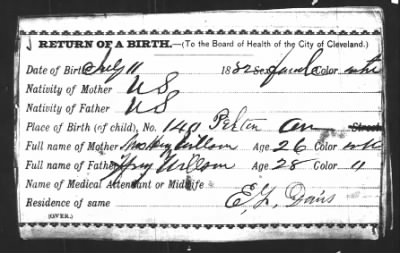 RETURN OF A BIRTH.—(To the Board of Health of the City of Cleveland.)
Date of Birth July 11 1882 Sex female Color
Nativity of Mother US
Nativity of Father US
Place of Birth (of child), No. 140 Perkin Street
Full name of Mother Willson Age 26 Color
Full name of Father Willson Age 28 Color "
Name of Medical Attendant or Midwife
Residence of same E. L. Davis
(OVER.)